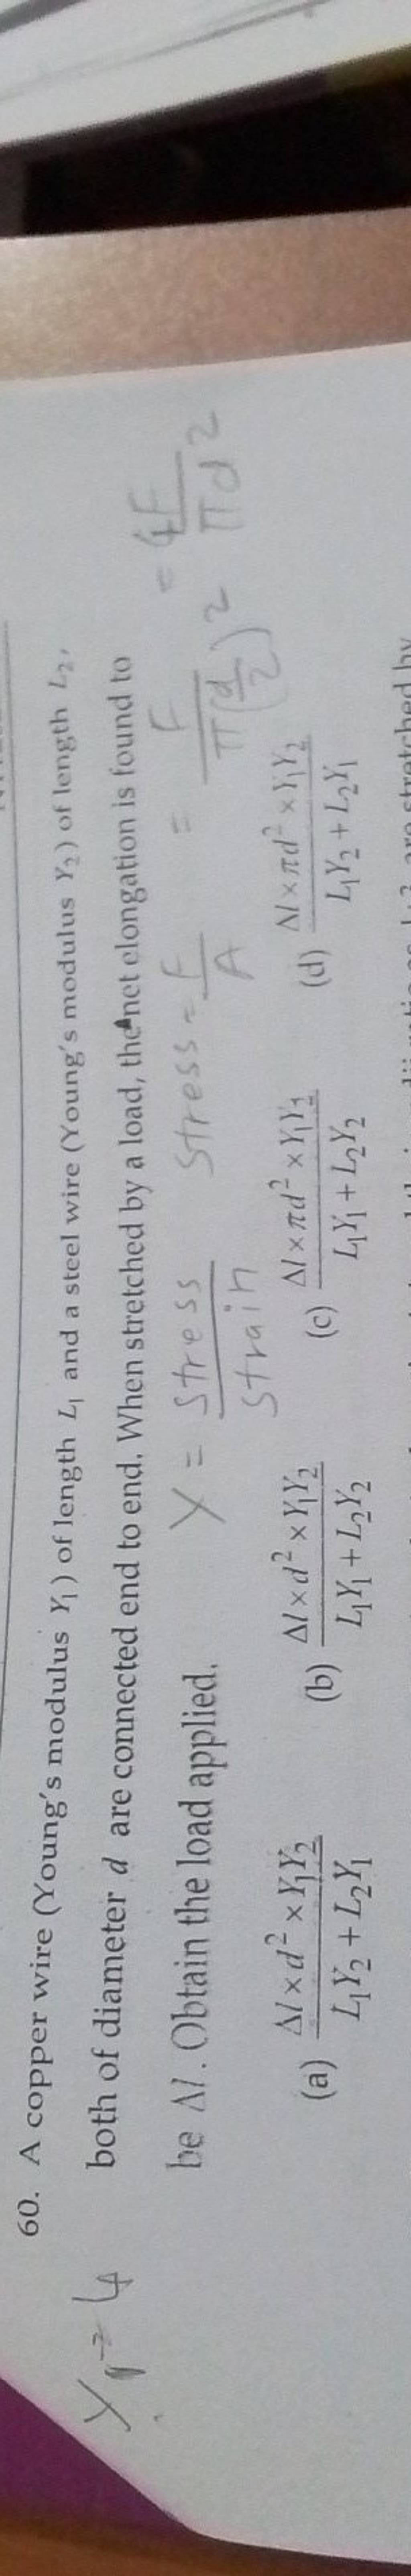 60. A copper wire (Young's modulus Y₁) of length L₁ and a steel wire (Young's modulus Y₂) of length L₂,
both of diameter d are connected end to end. When stretched by a load, the net elongation is found to
be Δl. Obtain the load applied.
Y = stress / strain Stress = F / A = F / π(d/2)² = 4F / πd²
(a) Δl × d² × Y₁Y₂ / L₁Y₂ + L₂Y₁ (b) Δl × d² × Y₁Y₂ / L₁Y₁ + L₂Y₂ (c) Δl × πd² × Y₁Y₂ / L₁Y₁ + L₂Y₂ (d) Δl × πd² × Y₁Y₂ / L₁Y₂ + L₂Y₁
are stretched by